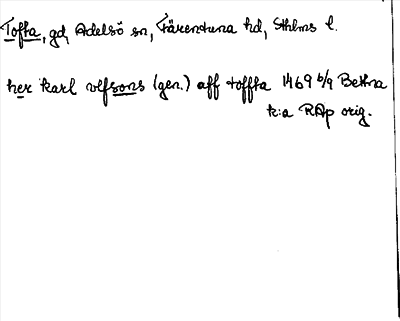 Tofta, gd, Adelsö sn, Färentuna hd, Sthlms l.
her karl vlfsons (gen.) aff toffta 1469 6/9 Betna
k:a RAp orig.